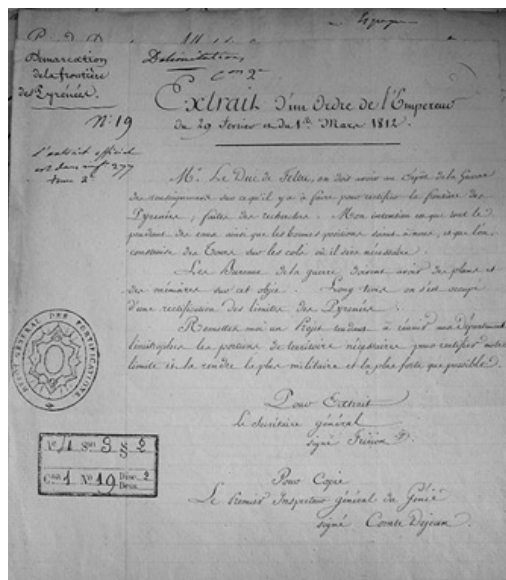 Espagne
Délimitation,
Con 2e
Démarcation
de la frontière
des Pyrénées.
No. 19
l'extrait officiel
est dans
tome 2e
Extrait d'un Ordre de l'Empereur
du 29 février et du 1er Mars 1812.
Mr. Le Duc de Feltre, on doit avoir au Dépôt de la Guerre
des renseignemens sur ce qu'il y a à faire pour rectifier la frontière des
Pyrénées; faites des recherches. Mon intention est que tout le
pendant des eaux ainsi que les bonnes positions soient à nous, et que l'on
construise des Tours sur les cols où il sera nécessaire.
Les Bureaux de la guerre, doivent avoir des plans et
des mémoires sur cet objet. Long-tems on s'est occupé
d'une rectification des limites des Pyrénées.
Remettez moi un projet tendant à réunir aux départemens
limitrophes les portions de territoire nécessaires pour rectifier notre
limite et la rendre la plus militaire et la plus forte que possible.
Pour Extrait
le Secrétaire général
signé Fririon
Pour Copie
Le Premier Inspecteur général du Génie
signé Comte Dejean.
DÉPÔT GÉNÉRAL DES FORTIFICATIONS
Son 3 § 2
Con 1 No 19 2